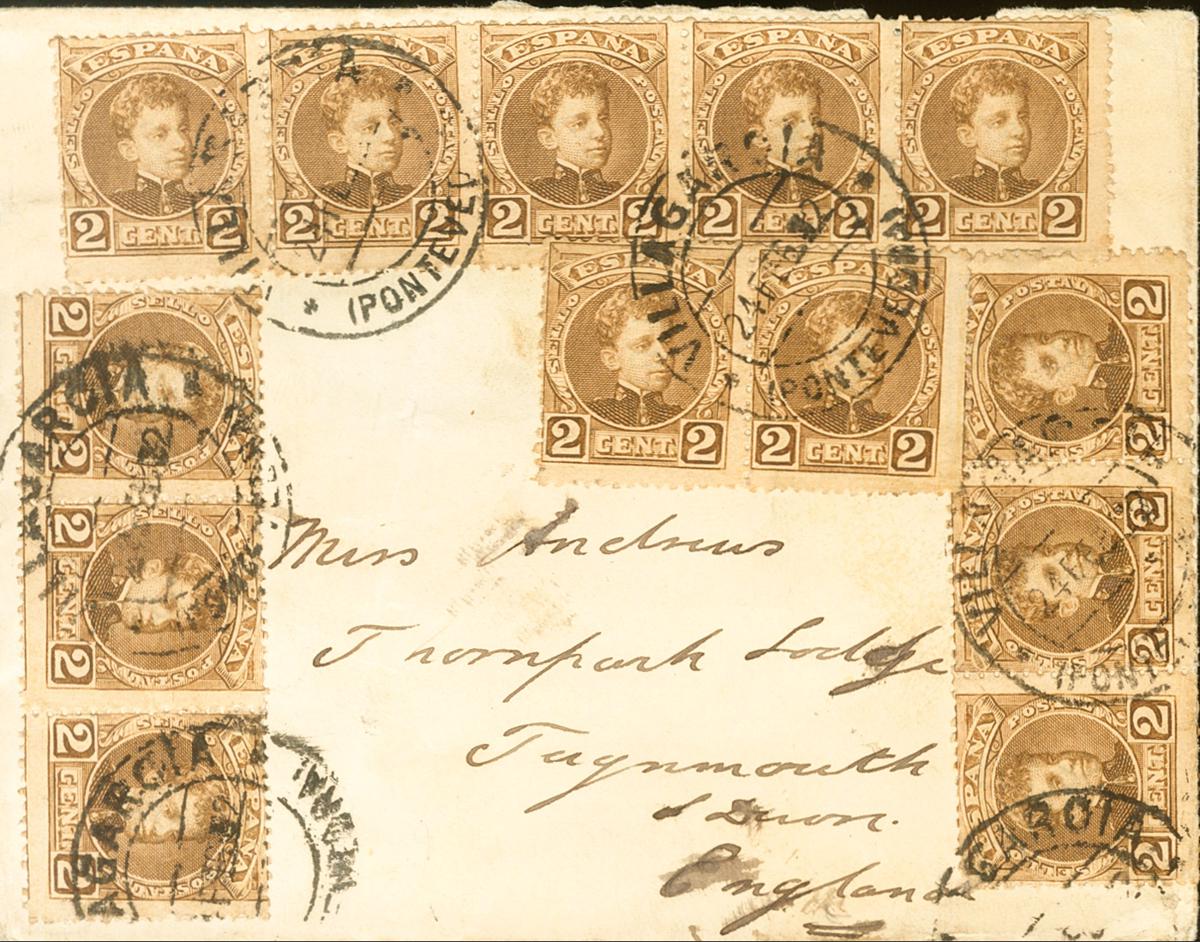 ESPAÑA ESPAÑA ESPAÑA ESPAÑA ESPAÑA
SELLO POSTAL SELLO POSTAL SELLO POSTAL SELLO POSTAL SELLO POSTAL
2 CENT. 2 2 CENT. 2 2 CENT. 2 2 CENT. 2 2 CENT. 2
(PONTEVED
VILLAGARCIA
24 FEB 02
(PONTEVEDRA)
ESPAÑA ESPAÑA
SELLO POSTAL SELLO
2 CENT. 2 2 CENT. 2
2 CENT 2 SELLO ESPAÑA POSTAL
2 CENT 2 SELLO ESPAÑA POSTAL
2 CENT 2 SELLO ESPAÑA POSTAL
LAGARCIA
AGARCIA
ESPAÑA POSTAL 2 CENT 2
ESPAÑA POSTAL 2 CENT 2
ESPAÑA POSTAL 2 CENT 2
VILLA
24 FE
(PONT
GARCIA
Miss Andrews
Thornpark Lodge
Teignmouth
S Devon.
England